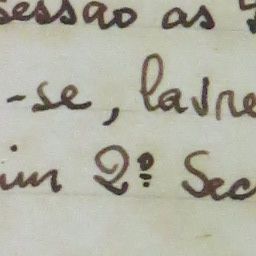 sessão as
-se, lavre
im 2º Sec